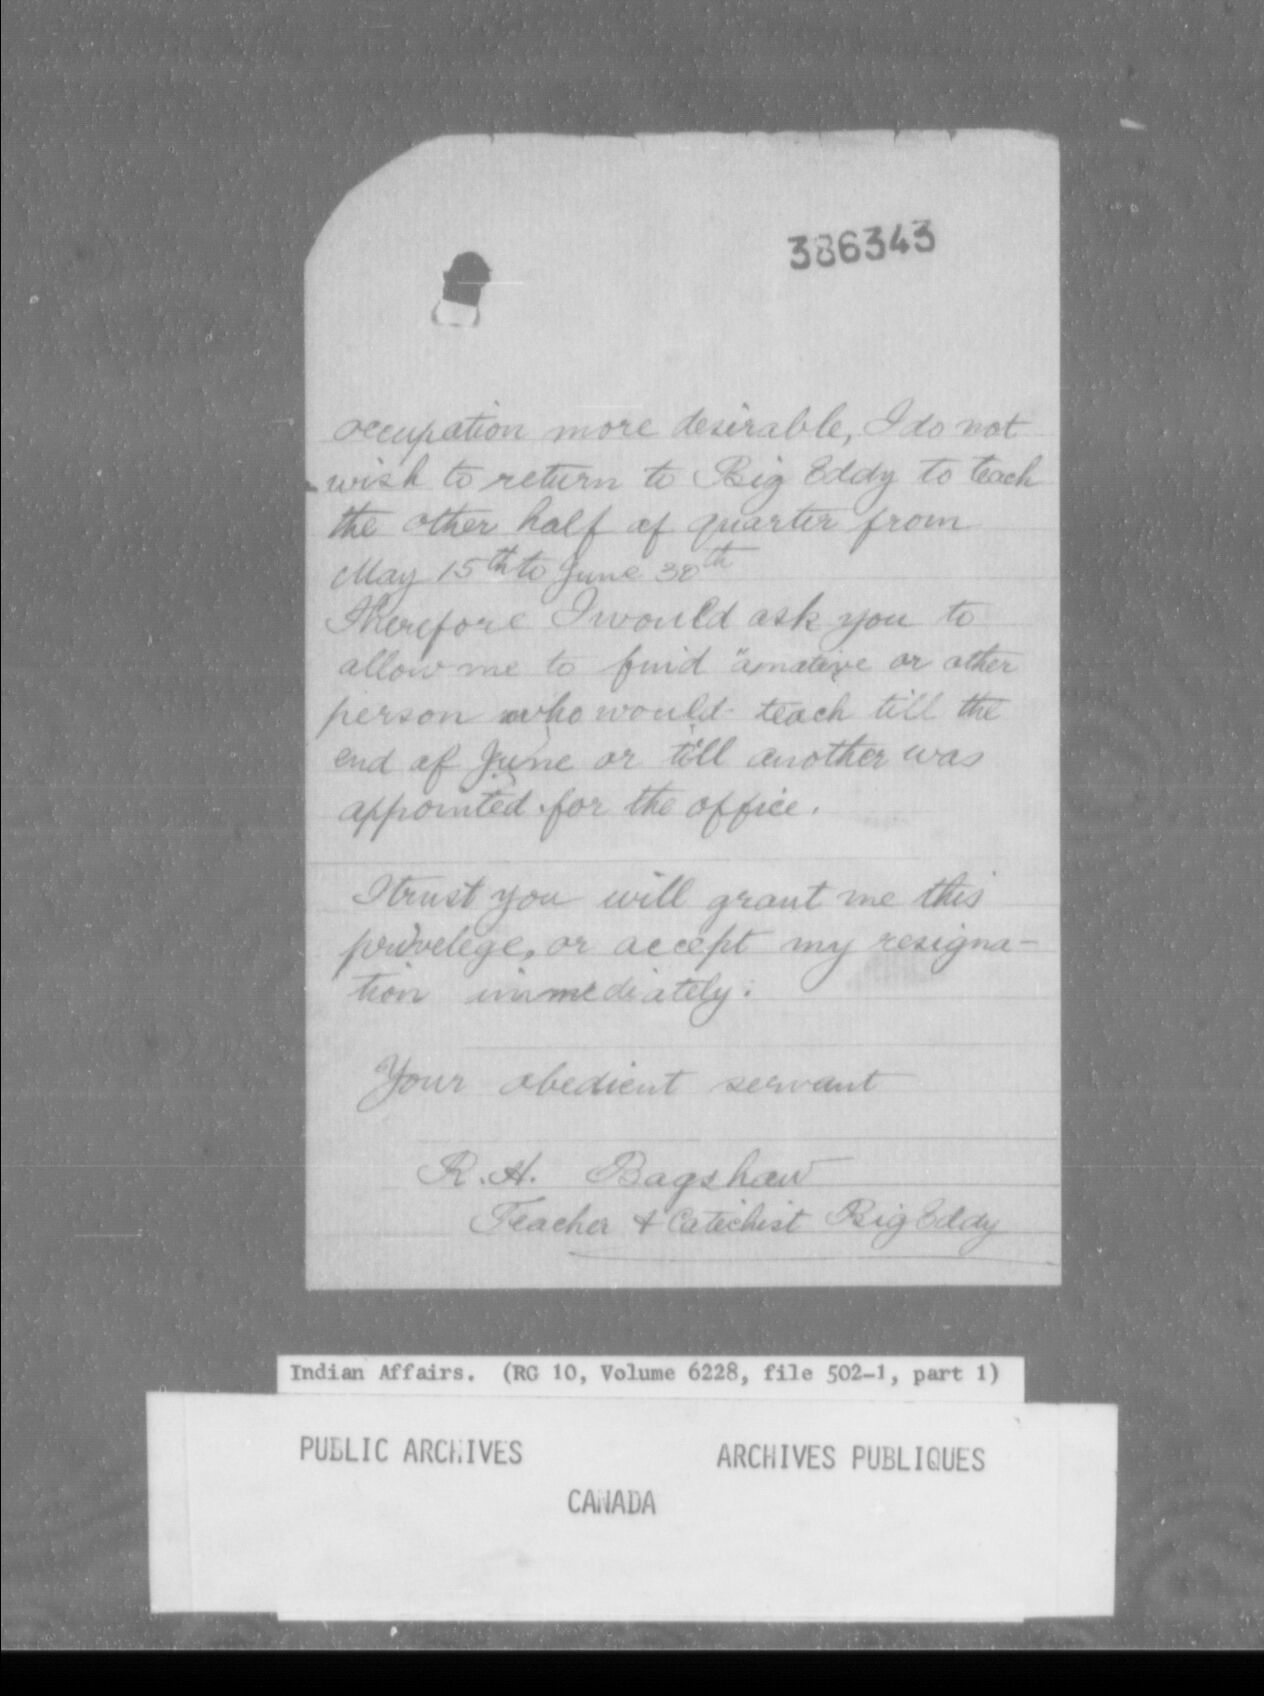 386343
occupation more desirable, I do not
wish to return to Big Eddy to teach
the other half of quarter from
May 15th to June 30th
Therefore I would ask you to
allow me to find a native or other
person who would teach till the
end of June or till another was
appointed for the office.
I trust you will grant me this
privelege, or accept my resigna-
tion immediately.
Your obedient servant
R. H. Bagshaw
Teacher & Catechist Big Eddy
Indian Affairs. (RG 10, Volume 6228, file 502-1, part 1)
PUBLIC ARCHIVES ARCHIVES PUBLIQUES
CANADA